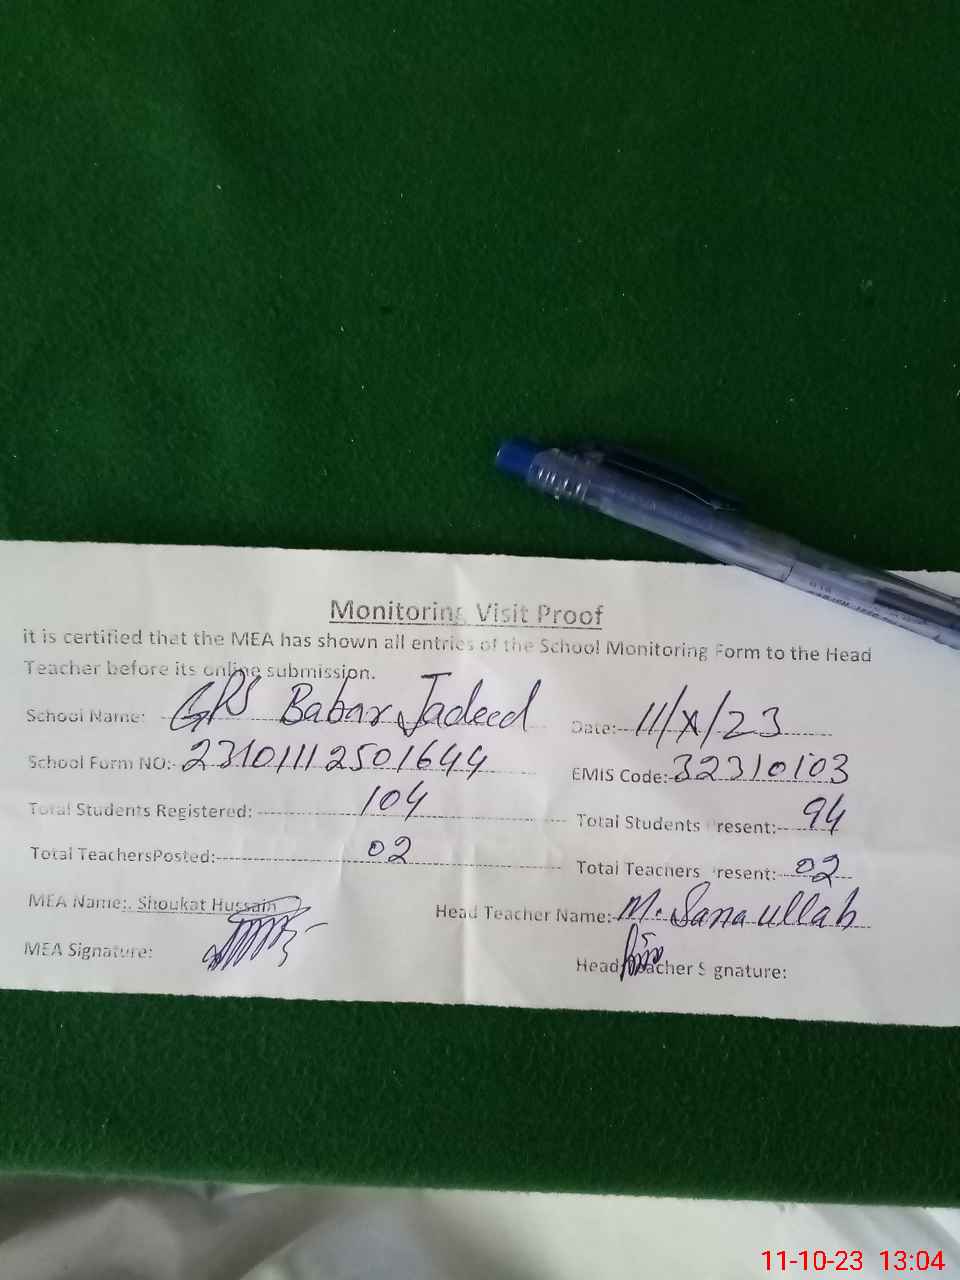 Monitoring Visit Proof
it is certified that the MEA has shown all entries of the School Monitoring Form to the Head
Teacher before its online submission.
School Name: GPS Babar Jadeed Date: 11/X/23
School Form NO: 23101112501644 EMIS Code: 32310103
Total Students Registered: 104 Total Students Present: 94
Total TeachersPosted: 02 Total Teachers Present: 02
MEA Name:. Shoukat Hussain Head Teacher Name: M. Sanaullah
MEA Signature: Head Teacher Signature:
11-10-23 13:04